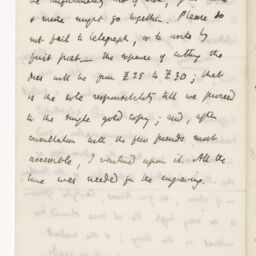 & mine might go together. Please do
not fail to telegraph, or to write by
first post — the expense of cutting the
dies will be from £25 to £30; that
is the sole responsibility till we proceed
to the single gold copy; and, after
consultation with the few friends most
accessible, I ventured upon it. All the
time was needed for the engraving.